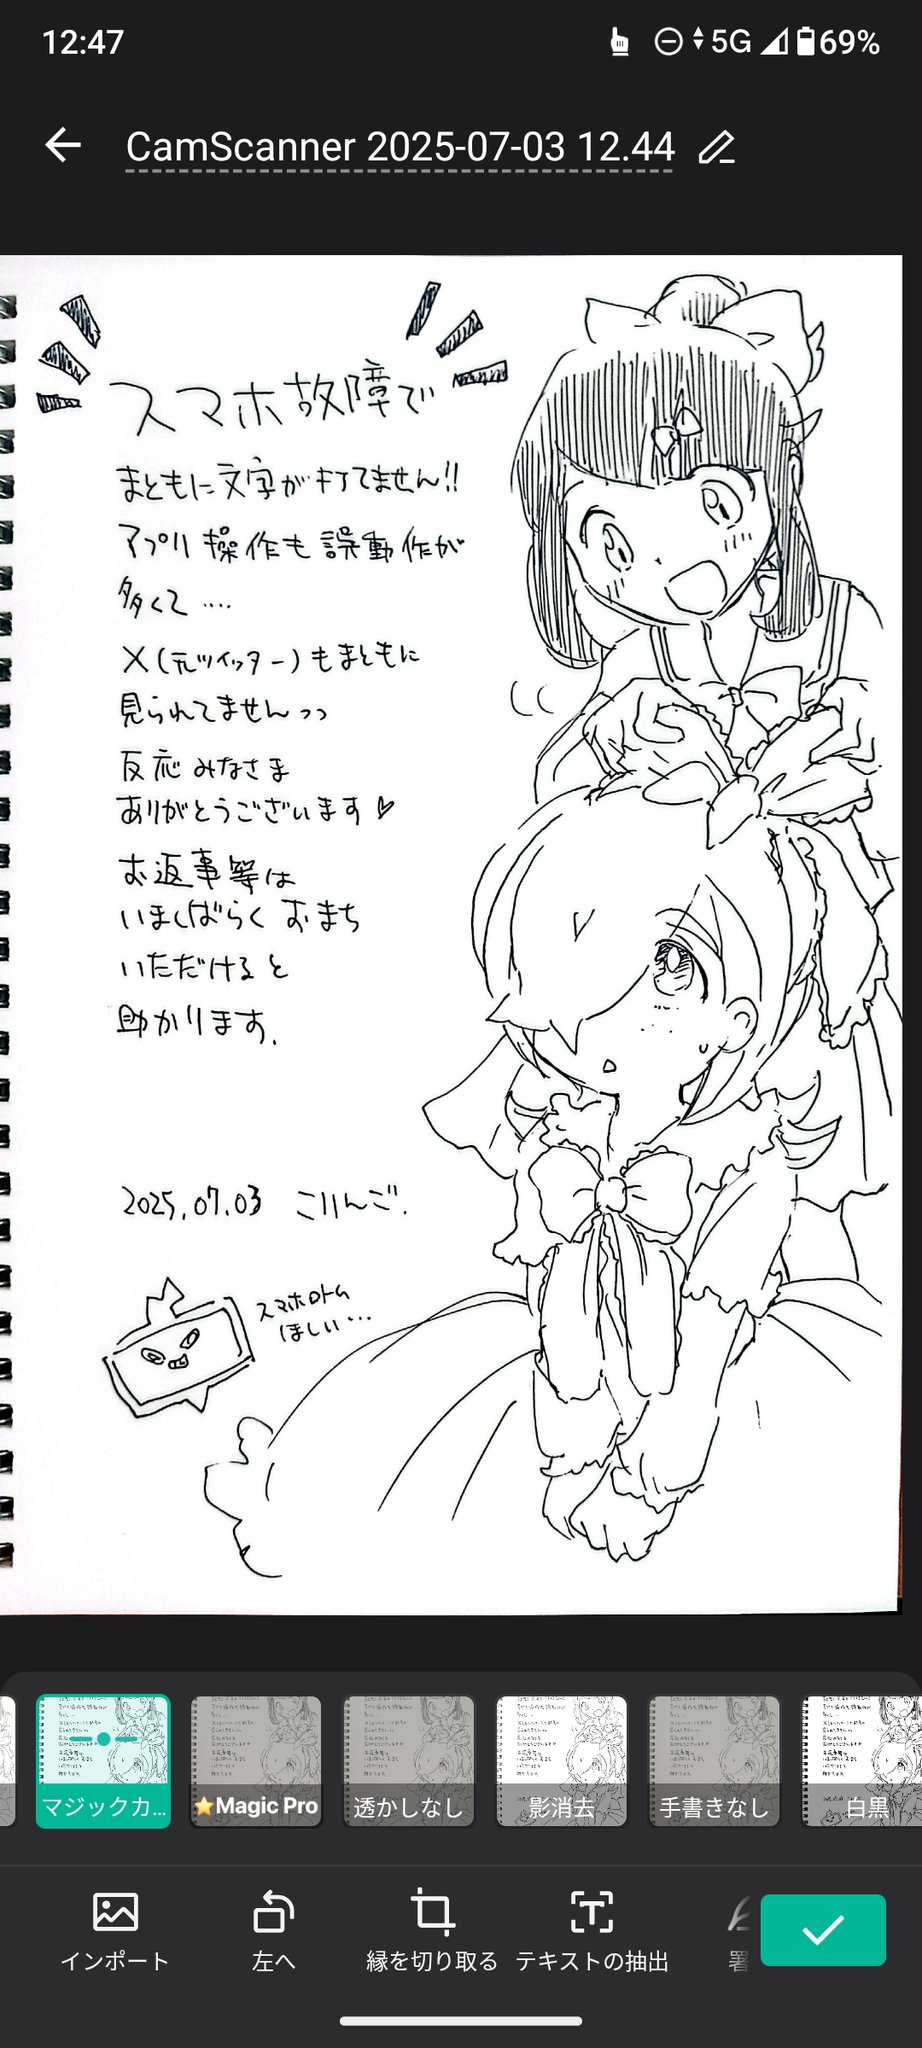 12:47
5G
69%
CamScanner 2025-07-03 12.44
スマホ故障で
まともに文字が打てません!!
アプリ操作も誤動作が
多くて‥‥
X(元ツイッター)もまともに
見られてませんっっ
反応みなさま
ありがとうございます♡
お返事等は
いましばらくおまち
いただけると
助かります.
2025.07.03 こりんご.
スマホロトム
ほしい…
マジックカ...
⭐Magic Pro
透かしなし
影消去
手書きなし
白黒
インポート
左へ
縁を切り取る
テキストの抽出
署